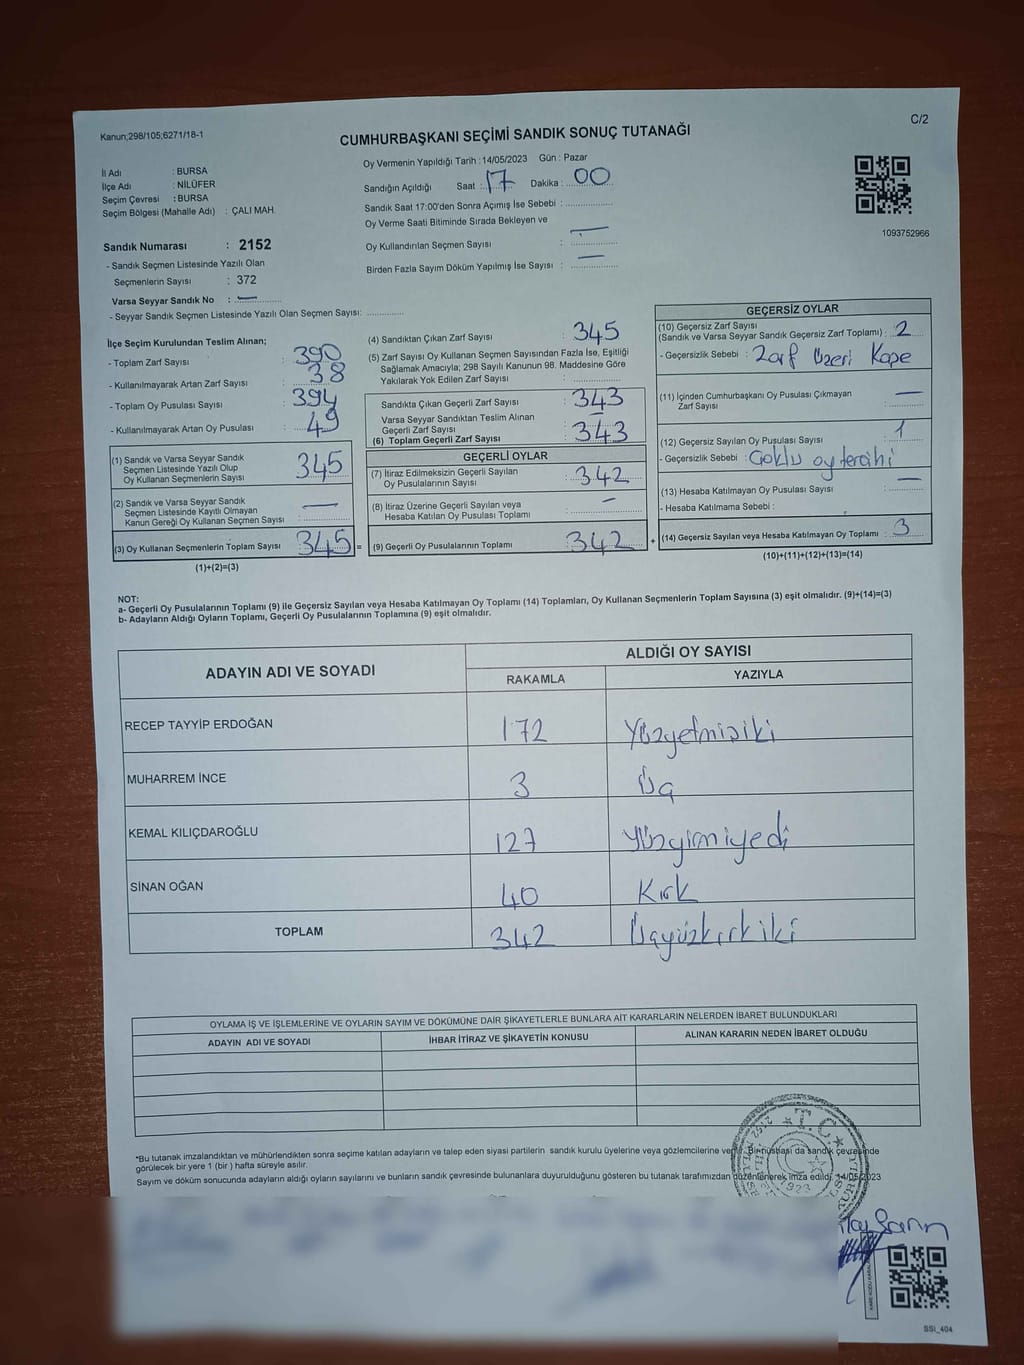 Kanun;298/105;6271/18-1
C/2
CUMHURBAŞKANI SEÇİMİ SANDIK SONUÇ TUTANAĞI
İl Adı : BURSA
İlçe Adı : NİLÜFER
Seçim Çevresi : BURSA
Seçim Bölgesi (Mahalle Adı) : ÇALI MAH.
Oy Vermenin Yapıldığı Tarih : 14/05/2023 Gün : Pazar
Sandığın Açıldığı Saat : 17 Dakika : 00
Sandık Saat 17:00'den Sonra Açımış İse Sebebi :
Oy Verme Saati Bitiminde Sırada Bekleyen ve
Oy Kullandırılan Seçmen Sayısı : —
Birden Fazla Sayım Döküm Yapılmış İse Sayısı : —
1093752966
Sandık Numarası : 2152
- Sandık Seçmen Listesinde Yazılı Olan
Seçmenlerin Sayısı : 372
Varsa Seyyar Sandık No : —
- Seyyar Sandık Seçmen Listesinde Yazılı Olan Seçmen Sayısı:
İlçe Seçim Kurulundan Teslim Alınan;
- Toplam Zarf Sayısı : 390
- Kullanılmayarak Artan Zarf Sayısı : 38
- Toplam Oy Pusulası Sayısı : 394
- Kullanılmayarak Artan Oy Pusulası : 49
(1) Sandık ve Varsa Seyyar Sandık
Seçmen Listesinde Yazılı Olup
Oy Kullanan Seçmenlerin Sayısı : 345
(2) Sandık ve Varsa Seyyar Sandık
Seçmen Listesinde Kayıtlı Olmayan
Kanun Gereği Oy Kullanan Seçmen Sayısı : —
(3) Oy Kullanan Seçmenlerin Toplam Sayısı 345 =
(1)+(2)=(3)
(4) Sandıktan Çıkan Zarf Sayısı : 345
(5) Zarf Sayısı Oy Kullanan Seçmen Sayısından Fazla İse, Eşitliği
Sağlamak Amacıyla; 298 Sayılı Kanunun 98. Maddesine Göre
Yakılarak Yok Edilen Zarf Sayısı :
Sandıkta Çıkan Geçerli Zarf Sayısı : 343
Varsa Seyyar Sandıktan Teslim Alınan
Geçerli Zarf Sayısı : —
(6) Toplam Geçerli Zarf Sayısı : 343
GEÇERLİ OYLAR
(7) İtiraz Edilmeksizin Geçerli Sayılan
Oy Pusulalarının Sayısı : 342
(8) İtiraz Üzerine Geçerli Sayılan veya
Hesaba Katılan Oy Pusulası Toplamı : —
(9) Geçerli Oy Pusulalarının Toplamı : 342 +
GEÇERSİZ OYLAR
(10) Geçersiz Zarf Sayısı
(Sandık ve Varsa Seyyar Sandık Geçersiz Zarf Toplamı) : 2
- Geçersizlik Sebebi : Zarf Üzeri Kaşe
(11) İçinden Cumhurbaşkanı Oy Pusulası Çıkmayan
Zarf Sayısı : —
(12) Geçersiz Sayılan Oy Pusulası Sayısı : 1
- Geçersizlik Sebebi : Çoklu oy tercihi
(13) Hesaba Katılmayan Oy Pusulası Sayısı : —
- Hesaba Katılmama Sebebi :
(14) Geçersiz Sayılan veya Hesaba Katılmayan Oy Toplamı : 3
(10)+(11)+(12)+(13)=(14)
NOT:
a- Geçerli Oy Pusulalarının Toplamı (9) ile Geçersiz Sayılan veya Hesaba Katılmayan Oy Toplamı (14) Toplamları, Oy Kullanan Seçmenlerin Toplam Sayısına (3) eşit olmalıdır. (9)+(14)=(3)
b- Adayların Aldığı Oyların Toplamı, Geçerli Oy Pusulalarının Toplamına (9) eşit olmalıdır.
ADAYIN ADI VE SOYADI ALDIĞI OY SAYISI
RAKAMLA YAZIYLA
RECEP TAYYİP ERDOĞAN 172 Yüzyetmişiki
MUHARREM İNCE 3 Üç
KEMAL KILIÇDAROĞLU 127 Yüzyirmiyedi
SİNAN OĞAN 40 Kırk
TOPLAM 342 Üçyüzkırkiki
OYLAMA İŞ VE İŞLEMLERİNE VE OYLARIN SAYIM VE DÖKÜMÜNE DAİR ŞİKAYETLERLE BUNLARA AİT KARARLARIN NELERDEN İBARET BULUNDUKLARI
ADAYIN ADI VE SOYADI İHBAR İTİRAZ VE ŞİKAYETİN KONUSU ALINAN KARARIN NEDEN İBARET OLDUĞU
*Bu tutanak imzalandıktan ve mühürlendikten sonra seçime katılan adayların ve talep eden siyasi partilerin sandık kurulu üyelerine veya gözlemcilerine verilir. Bir nüshası da sandık çevresinde
görülecek bir yere 1 (bir ) hafta süreyle asılır.
Sayım ve döküm sonucunda adayların aldığı oyların sayılarını ve bunların sandık çevresinde bulunanlara duyurulduğunu gösteren bu tutanak tarafımızdan düzenlenerek imza edildi. 14/05/2023
T.C.
1923
SSİ_404